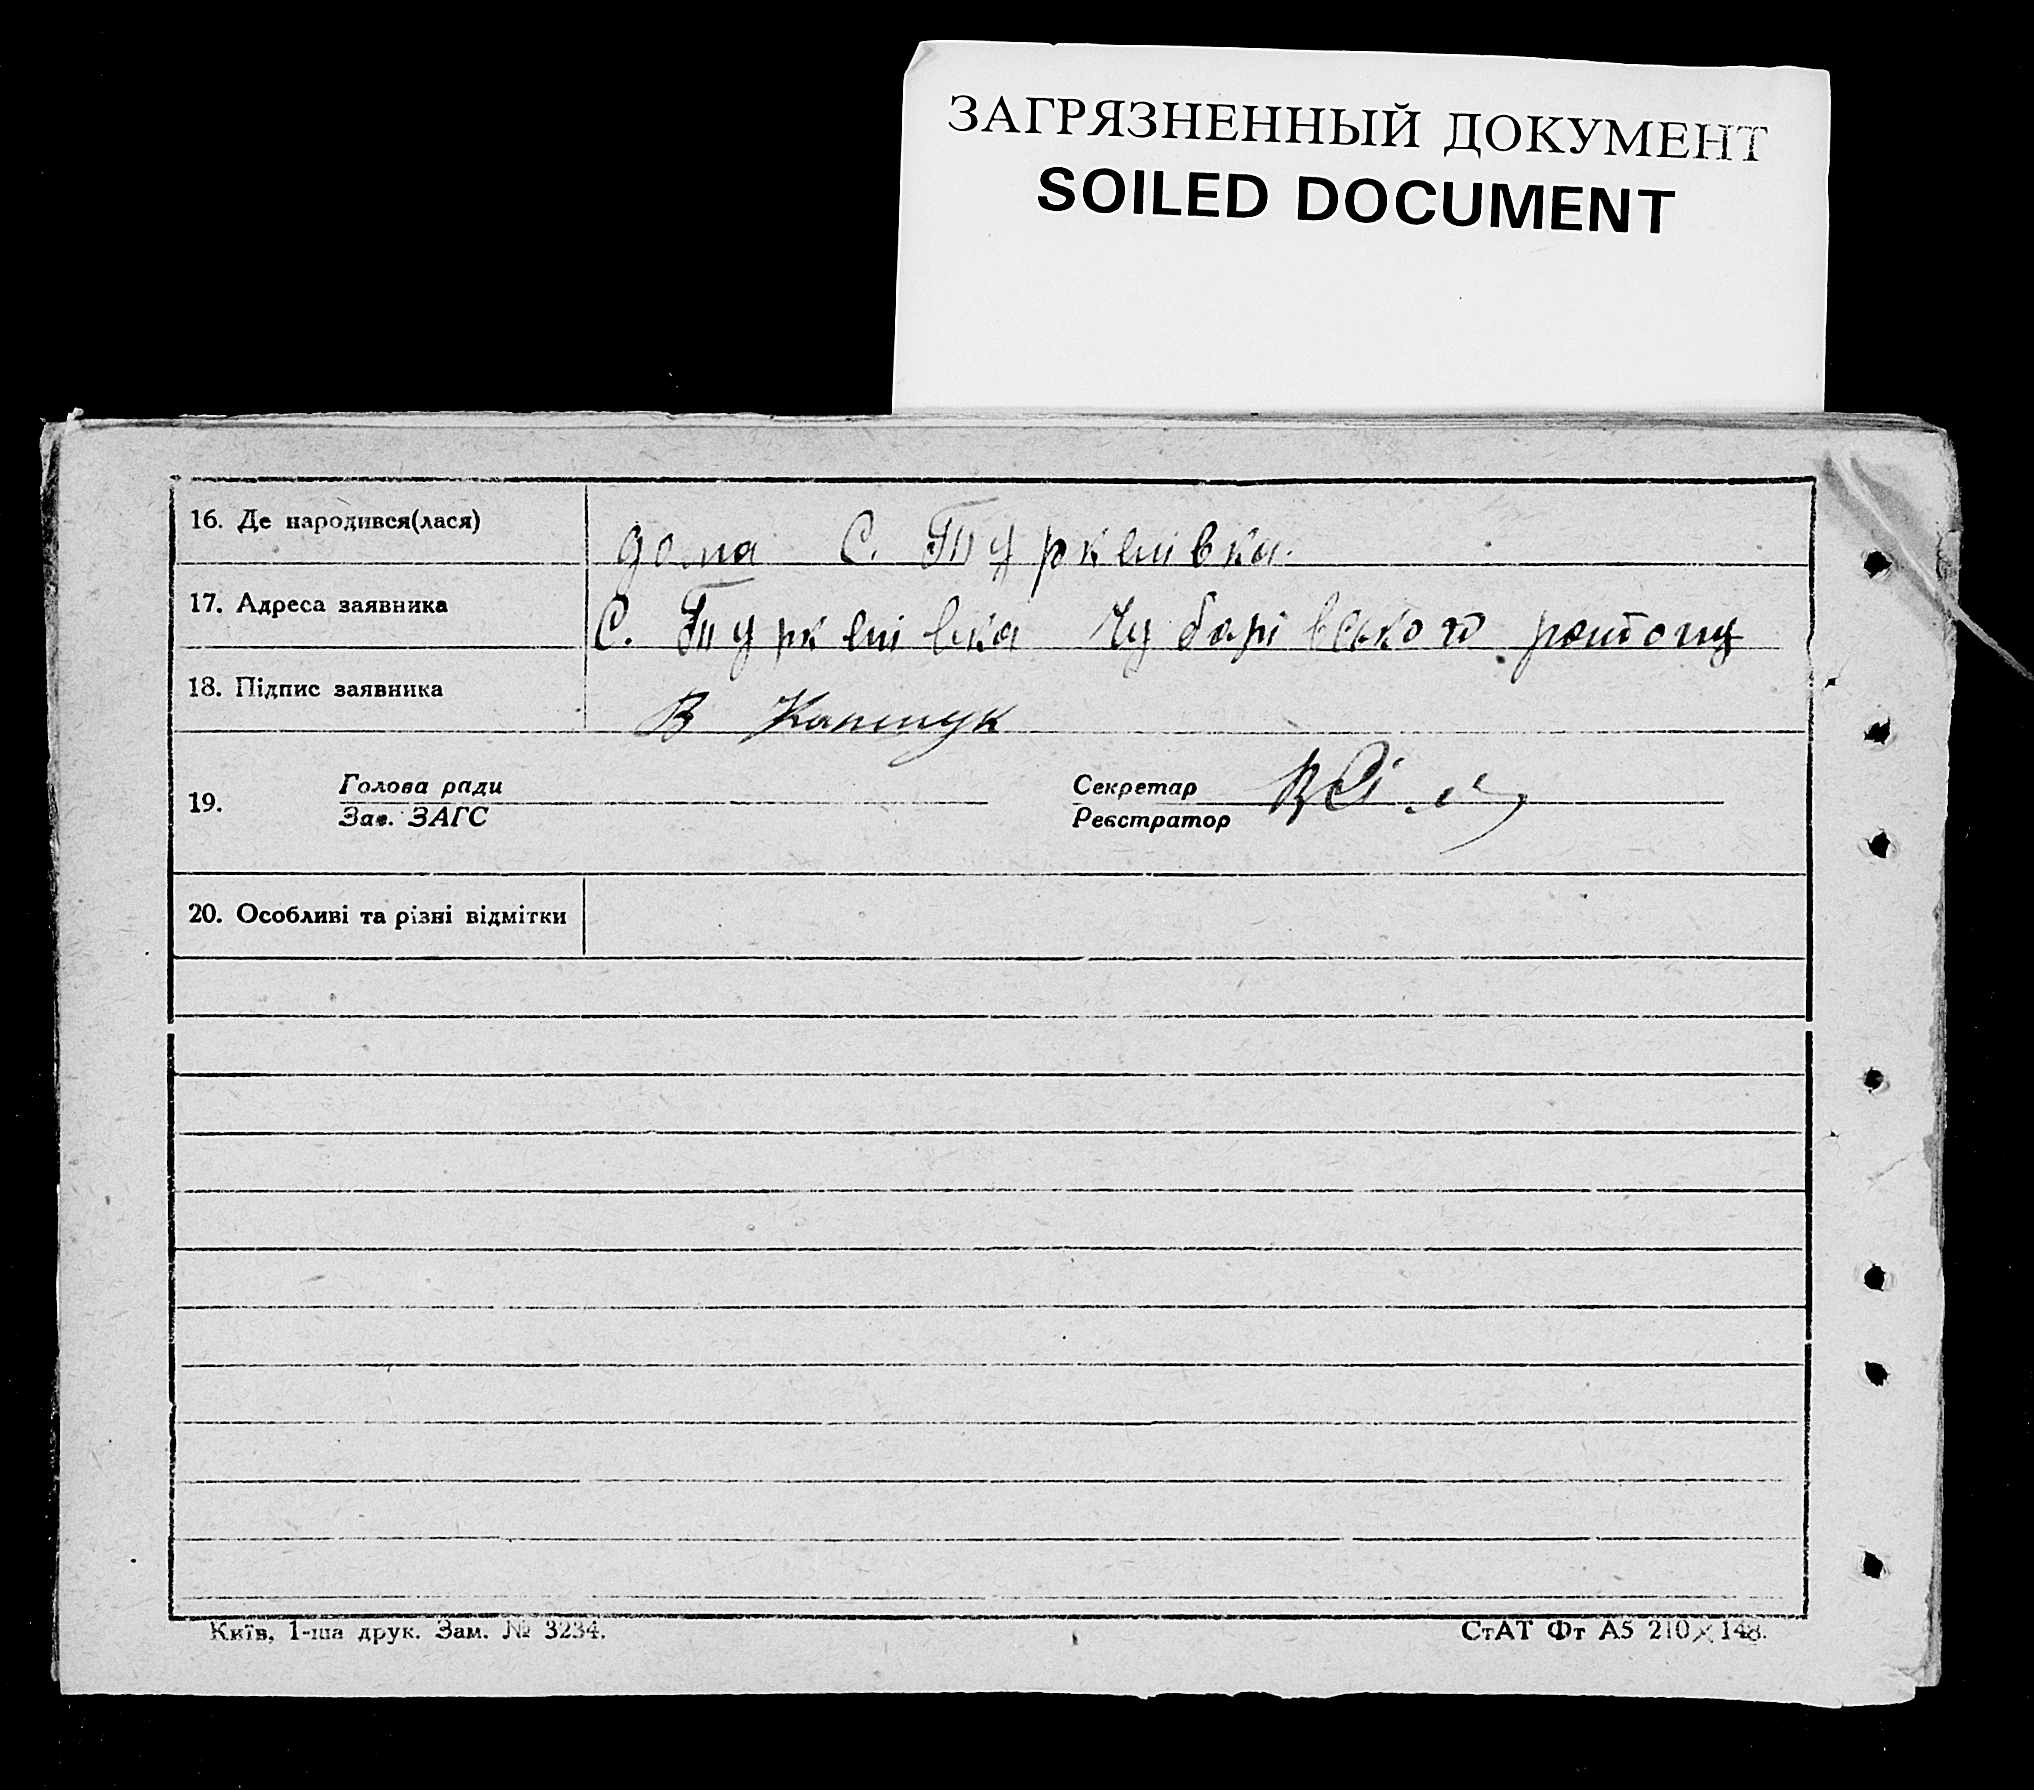 ЗАГРЯЗНЕННЫЙ ДОКУМЕНТ
SOILED DOCUMENT
16. Де народився(лася) дома С. Туркенівка.
17. Адреса заявника С. Туркенівка Чубарівського району
18. Підпис заявника В Капшук
19. Голова ради Секретар
Зав. ЗАГС Реєстратор
20. Особливі та різні відмітки
Київ, 1-ша друк. Зам. № 3234. СтАТ Фт А5 210×148.